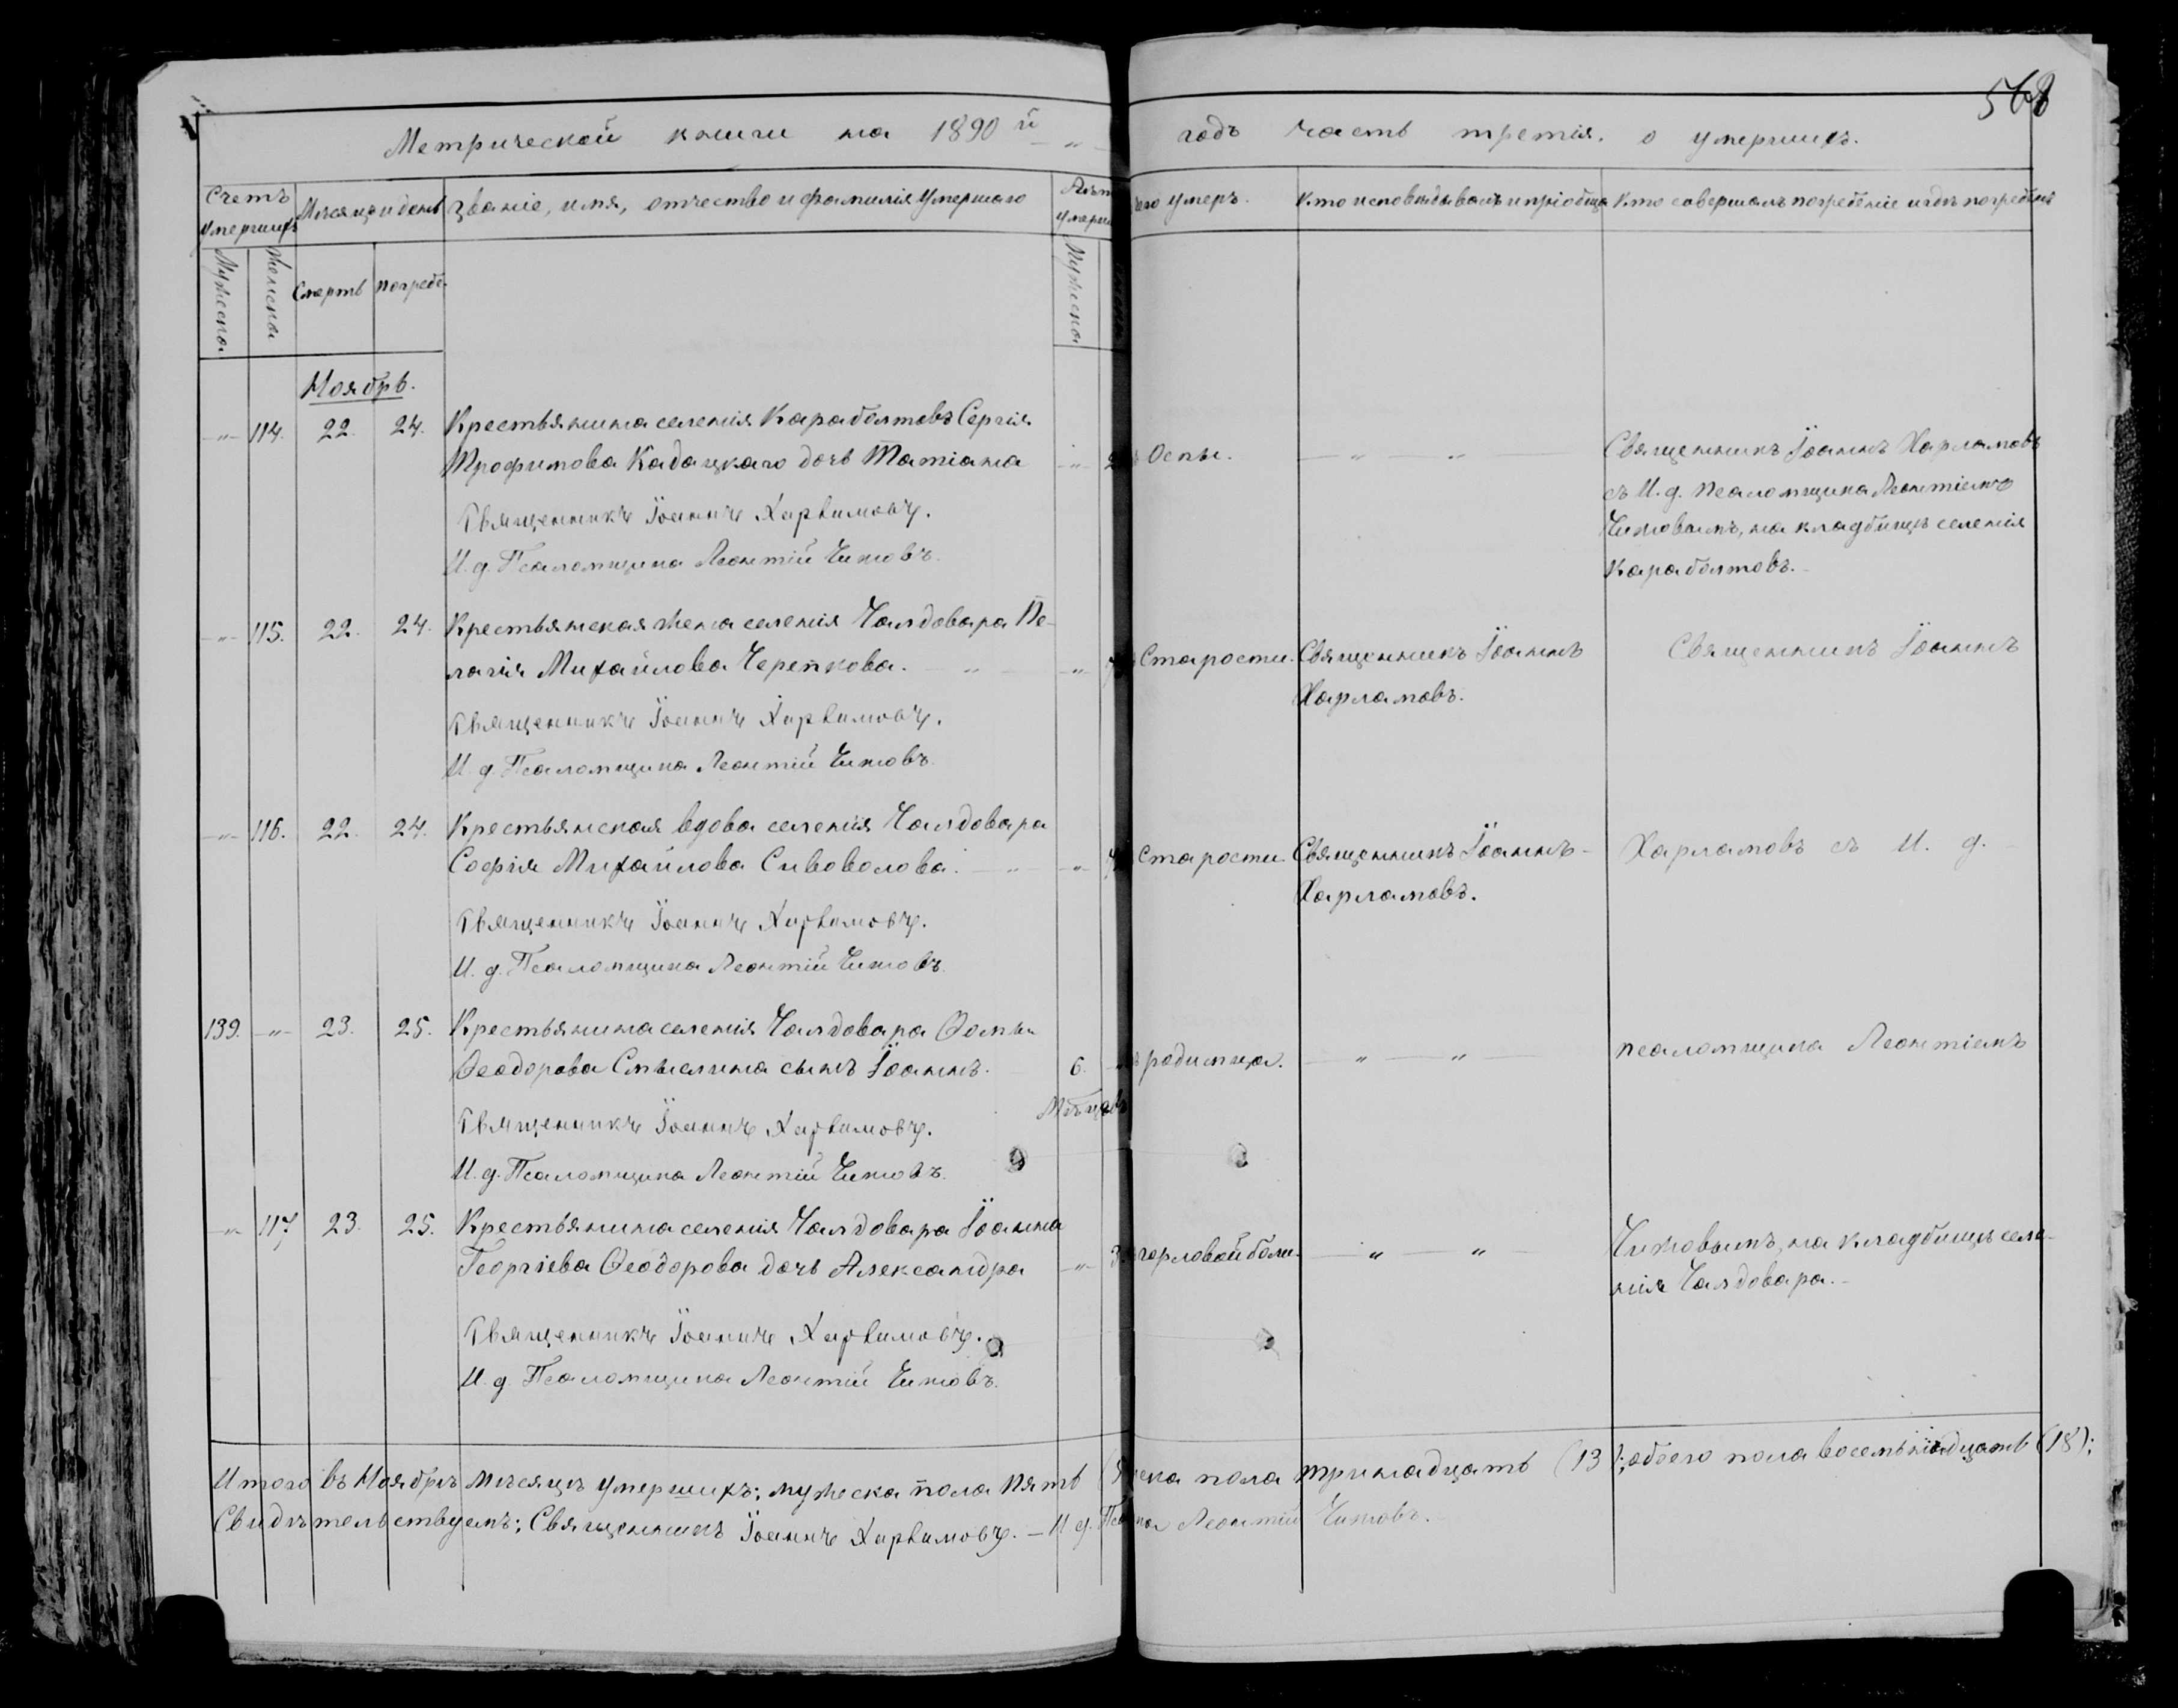 568
Метрической книги на 1890й годъ часть третія. о умершихъ.
Счетъ умершихъ
Мѣсяцъ и день
Званіе, имя, отчество и фамилія умершаго
Лѣт умерш
чего умеръ.
Кто исповѣдывалъ и пріобща
Кто совершалъ погребеніе и гдѣ погребены
Мужеска
Женска
Смерть
погребе.
Мужеска
Ноябрь.
-„- 114. 22. 24. Крестьянина селенія Карабалтовъ Сергія
Трофимова Кадацкаго дочь Татіана -„- 2 Оспы. -„- -„-
Священникъ Іоаннъ Харламовъ
съ И. д. псаломщика Леонтіемъ
Чижовымъ, на кладбищѣ селенія
Карабалтовъ.-
Священникъ Іоаннъ Харламовъ.
И. д. Псаломщика Леонтій Чижовъ.
-„- 115. 22. 24. Крестьянская жена селенія Чалдовара Пе-
лагія Михайлова Черепкова. -„- -„- Старости. Священникъ Іоаннъ
Харламовъ.
Священникъ Іоаннъ
Священникъ Іоаннъ Харламовъ.
И. д. Псаломщика Леонтій Чижовъ.
-„- 116. 22. 24. Крестьянская вдова селенія Чалдовара
Софія Михайлова Сивоволова. -„- -„- Старости. Священникъ Іоаннъ-
Харламовъ.
Харламовъ съ И. д.
Священникъ Іоаннъ Харламовъ.
И. д. Псаломщика Леонтій Чижовъ.
139. -„- 23. 25. Крестьянина селенія Чалдовара Ѳомы
Ѳеодорова Смыслина сынъ Іоаннъ. 6. родимца. -„- -„-
Мѣсяцевъ
псаломщика Леонтіемъ
Священникъ Іоаннъ Харламовъ.
И. д. Псаломщика Леонтій Чижовъ.
-„- 117. 23. 25. Крестьянина селенія Чалдовара Іоанна
Георгіева Ѳеодорова дочь Александра -„- 3. горловой боли. -„- -„-
Чижовымъ, на кладбищѣ селе-
нія Чалдовара.-
Священникъ Іоаннъ Харламовъ.
И. д. Псаломщика Леонтій Чижовъ.
Итого въ Ноябрѣ мѣсяцѣ умершихъ: мужеска пола пять ( ска пола тринадцать (13); обоего пола восемьнадцать (18);
Свидѣтельствуемъ: Священникъ Іоаннъ Харламовъ. - И. д. Пс ка Леонтій Чижовъ.-